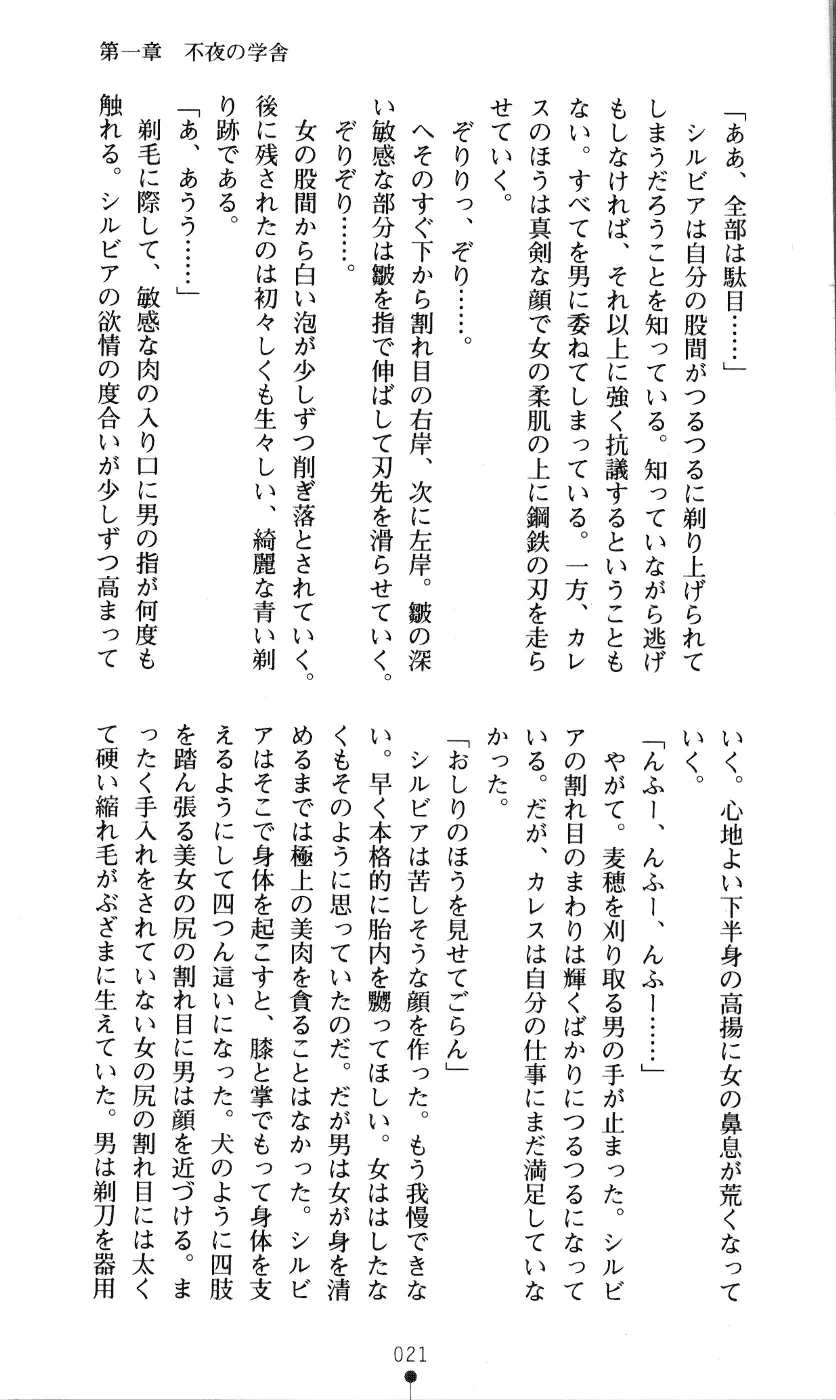 第一章　不夜の学舎
「ああ、全部は駄目……」
　シルビアは自分の股間がつるつるに剃り上げられて
しまうだろうことを知っている。知っていながら逃げ
もしなければ、それ以上に強く抗議するということも
ない。すべてを男に委ねてしまっている。一方、カレ
スのほうは真剣な顔で女の柔肌の上に鋼鉄の刃を走ら
せていく。
　ぞりりっ、ぞり……。
　へそのすぐ下から割れ目の右岸、次に左岸。皺の深
い敏感な部分は皺を指で伸ばして刃先を滑らせていく。
　ぞりぞり……。
　女の股間から白い泡が少しずつ削ぎ落とされていく。
後に残されたのは初々しくも生々しい、綺麗な青い剃
り跡である。
「あ、あうう……」
　剃毛に際して、敏感な肉の入り口に男の指が何度も
触れる。シルビアの欲情の度合いが少しずつ高まって
いく。心地よい下半身の高揚に女の鼻息が荒くなって
いく。
「んふー、んふー、んふー……」
　やがて。麦穂を刈り取る男の手が止まった。シルビ
アの割れ目のまわりは輝くばかりにつるつるになって
いる。だが、カレスは自分の仕事にまだ満足していな
かった。
「おしりのほうを見せてごらん」
　シルビアは苦しそうな顔を作った。もう我慢できな
い。早く本格的に胎内を嬲ってほしい。女ははしたな
くもそのように思っていたのだ。だが男は女が身を清
めるまでは極上の美肉を貪ることはなかった。シルビ
アはそこで身体を起こすと、膝と掌でもって身体を支
えるようにして四つん這いになった。犬のように四肢
を踏ん張る美女の尻の割れ目に男は顔を近づける。ま
ったく手入れをされていない女の尻の割れ目には太く
て硬い縮れ毛がぶざまに生えていた。男は剃刀を器用
021